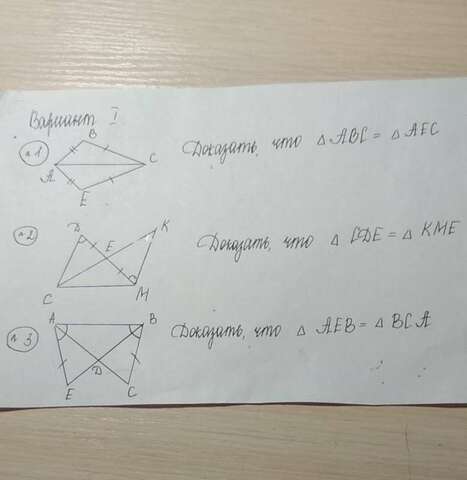 Вариант I
№1
B
A
C
E
Доказать, что △ ABC = △ AEC
№2
D
E
K
C
M
Доказать, что △ CDE = △ KME
№3
A
B
D
E
C
Доказать, что △ AEB = △ BCA